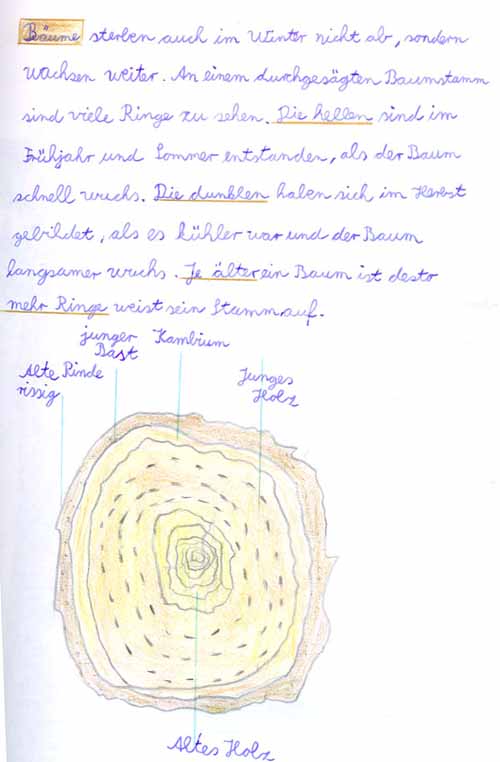 Bäume sterben auch im Winter nicht ab, sondern
wachsen weiter. An einem durchgesägten Baumstamm
sind viele Ringe zu sehen. Die hellen sind im
Frühjahr und Sommer entstanden, als der Baum
schnell wuchs. Die dunklen haben sich im Herbst
gebildet, als es kühler war und der Baum
langsamer wuchs. Je älter ein Baum ist desto
mehr Ringe weist sein Stamm auf.
junger
Bast
Kambium
Alte Rinde
rissig
Junges
Holz
Altes Holz